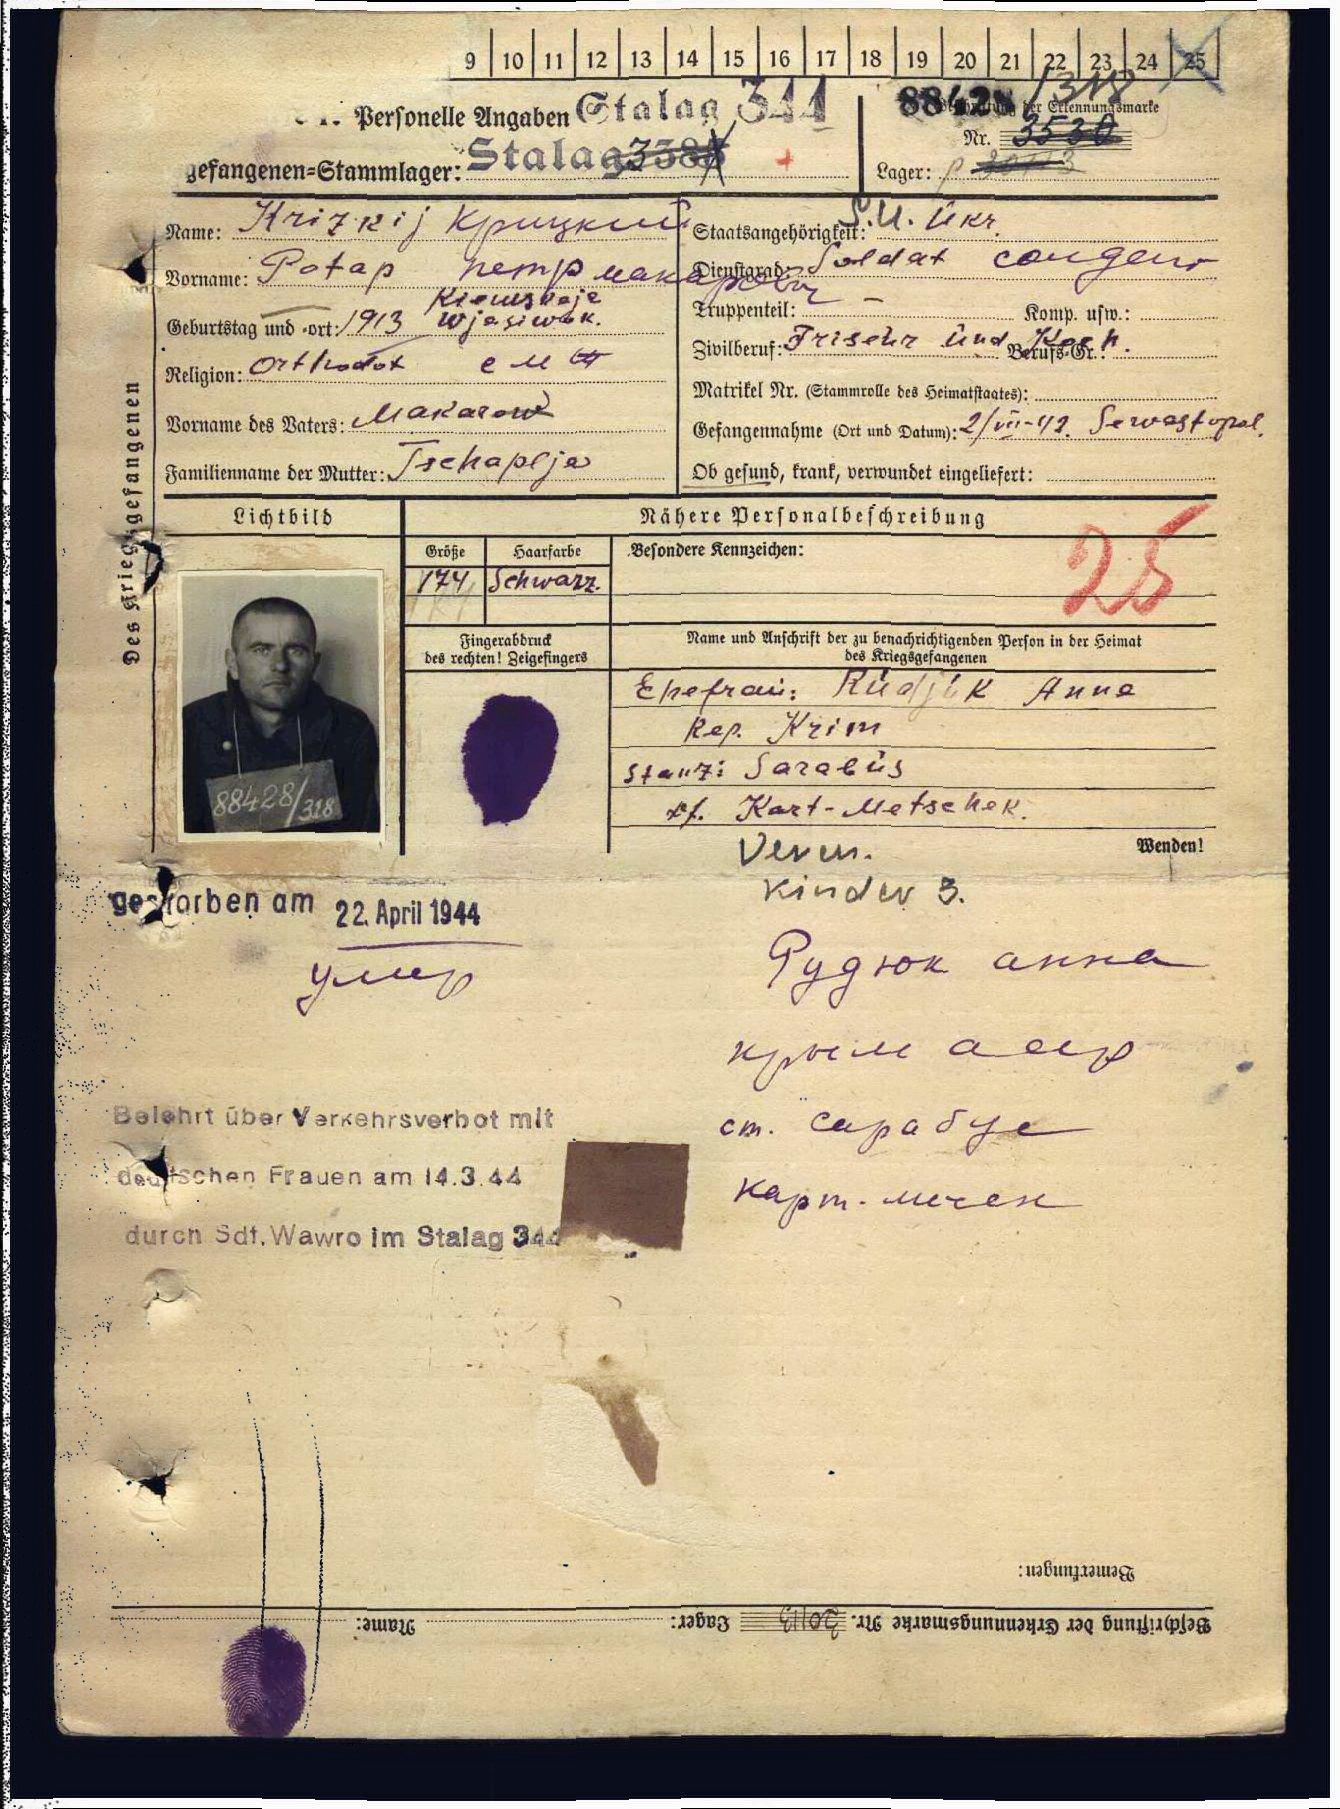 9 10 11 12 13 14 15 16 17 18 19 20 21 22 23 24 25
Personelle Angaben Stalag 344
gefangenen=Stammlager: Stalag 358
88428 / 318
der Erkennungsmarke
Nr. 3530
Lager:
Des Kriegsgefangenen
Name: Krizkij Крицкий
Vorname: Potap петр макарович
Kiewskaja
Geburtstag und =ort: 1913
Religion: Orthodox
Vorname des Vaters: Makarow
Familienname der Mutter: Tschaplja
Staatsangehörigkeit: S.U. Ukr.
Dienstgrad: Soldat
Truppenteil: – Komp. usw.:
Zivilberuf: Friseur und Koch. Berufs=Gr.:
Matrikel Nr. (Stammrolle des Heimatstaates):
Gefangennahme (Ort und Datum): 2/VII-42. Sewastopol.
Ob gesund, krank, verwundet eingeliefert:
Lichtbild
Nähere Personalbeschreibung
Größe Haarfarbe Besondere Kennzeichen:
174 Schwarz.
25
Fingerabdruck
des rechten! Zeigefingers
Name und Anschrift der zu benachrichtigenden Person in der Heimat
des Kriegsgefangenen
Ehefrau: Rudjuk Anna
Rep. Krim
Stanz: Sarabus
Kart-Metschek.
88428/318
Wenden!
Kinder 3.
gestorben am 22. April 1944
умер
Рудюк анна
крым асср
ст. сарабус
карт-мечек
Belehrt über Verkehrsverbot mit
deutschen Frauen am 14.3.44
durch Sdf. Wawro im Stalag 344
Bemerkungen:
Beschriftung der Erkennungsmarke Nr. Lager: Name: